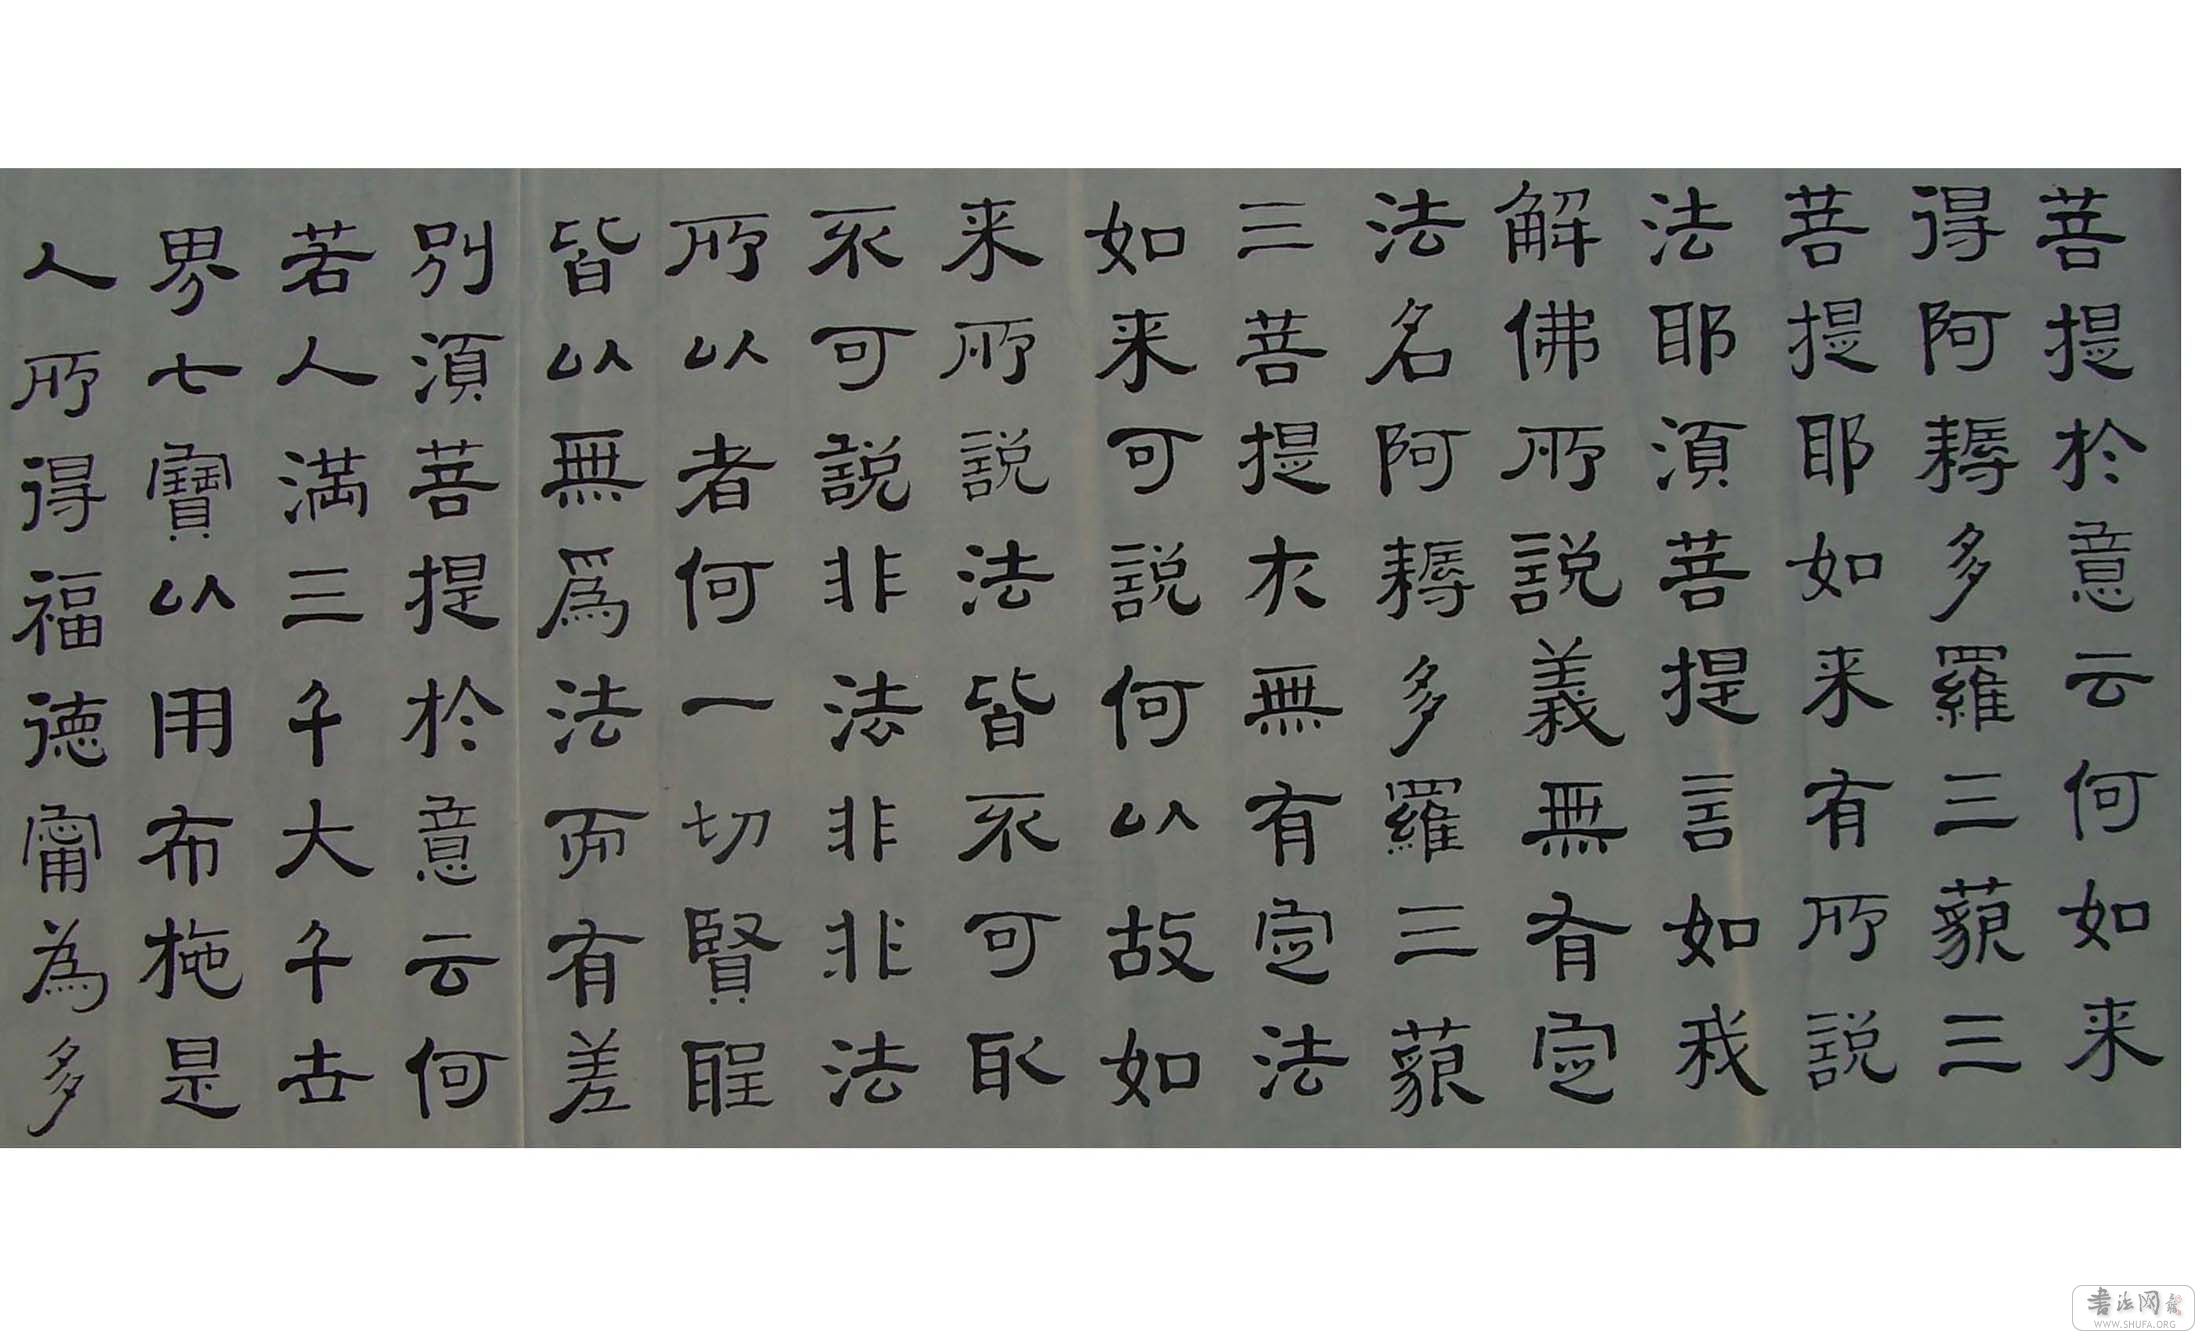 菩提於意云何如来
得阿耨多羅三藐三
菩提耶如来有所説
法耶須菩提言如我
解佛所説義無有定
法名阿耨多羅三藐
三菩提亦無有定法
如来可説何以故如
来所説法皆不可取
不可説非法非非法
所以者何一切賢聖
皆以無爲法而有差
別須菩提於意云何
若人満三千大千世
界七寶以用布施是
人所得福德甯為多
书法网
WWW.SHUFA.ORG